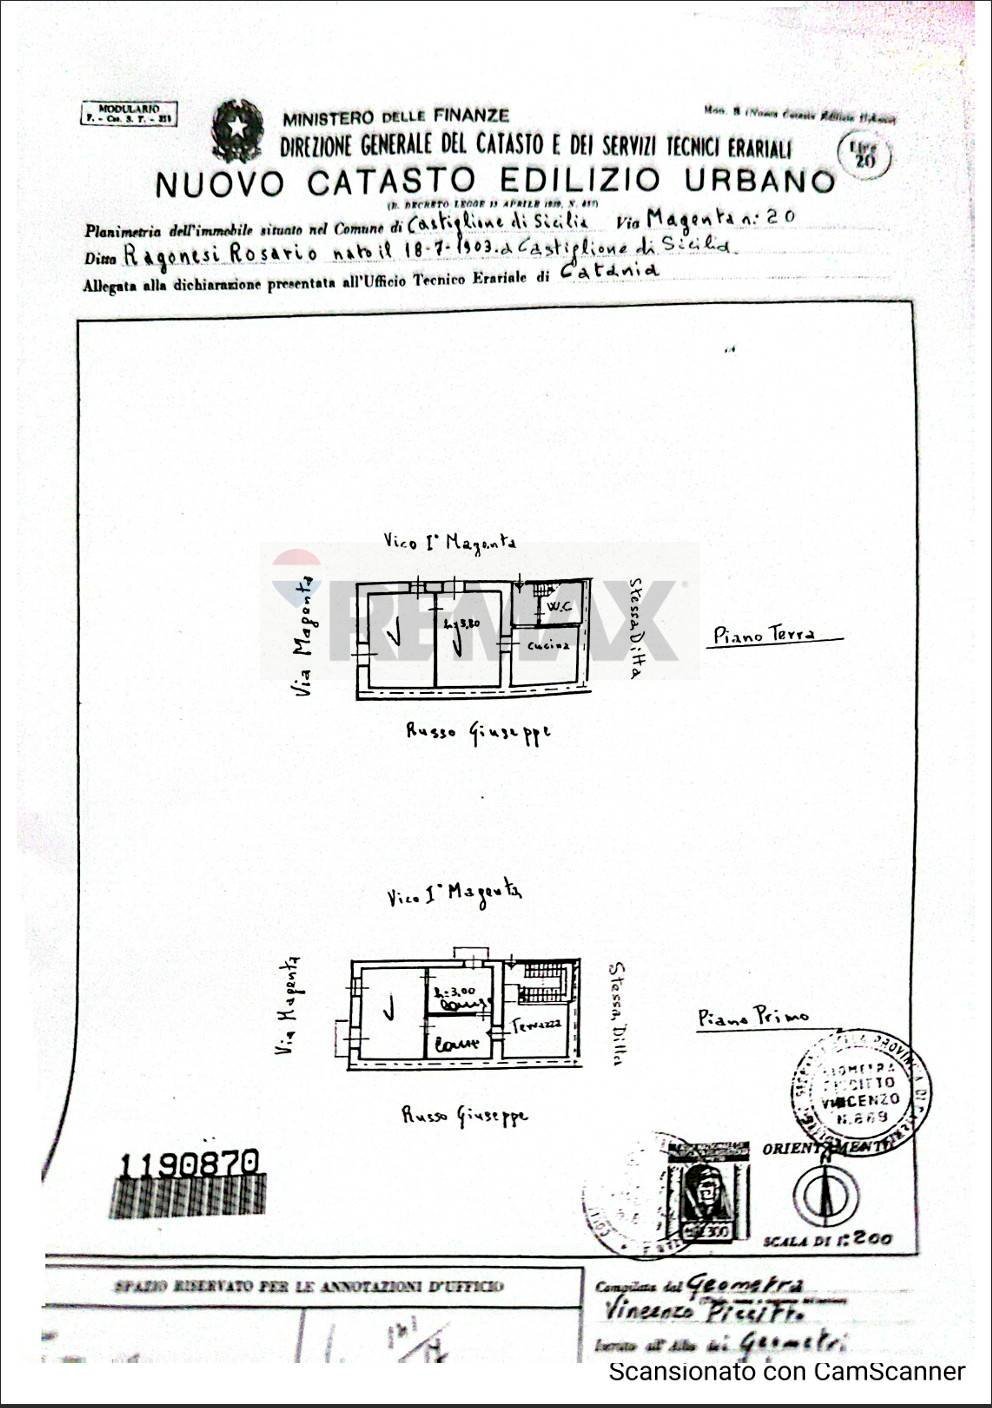 MODULARIO
F. - Cat. S. T. - 315
MINISTERO DELLE FINANZE
DIREZIONE GENERALE DEL CATASTO E DEI SERVIZI TECNICI ERARIALI
Lire
20
NUOVO CATASTO EDILIZIO URBANO
Planimetria dell'immobile situato nel Comune di Castiglione di Sicilia Via Magenta n: 20
Ditta Ragonesi Rosario nato il 18-7-1903 a Castiglione di Sicilia
Allegata alla dichiarazione presentata all'Ufficio Tecnico Erariale di Catania
Vico I° Magenta
Via Magenta
RE/MAX
W.C
h=3,80
cucina
Stessa Ditta
Piano Terra
Russo Giuseppe
Vico I° Magenta
Via Magenta
h=3,00
Terrazza
Stessa Ditta
Piano Primo
Russo Giuseppe
GEOMETRA
VINCENZO
N.669
1190870
ORIENTAMENTO
N
300
SCALA DI 1:200
SPAZIO RISERVATO PER LE ANNOTAZIONI D'UFFICIO
Compilata dal Geometra
Vincenzo
Iscritto all'Albo dei Geometri
Scansionato con CamScanner